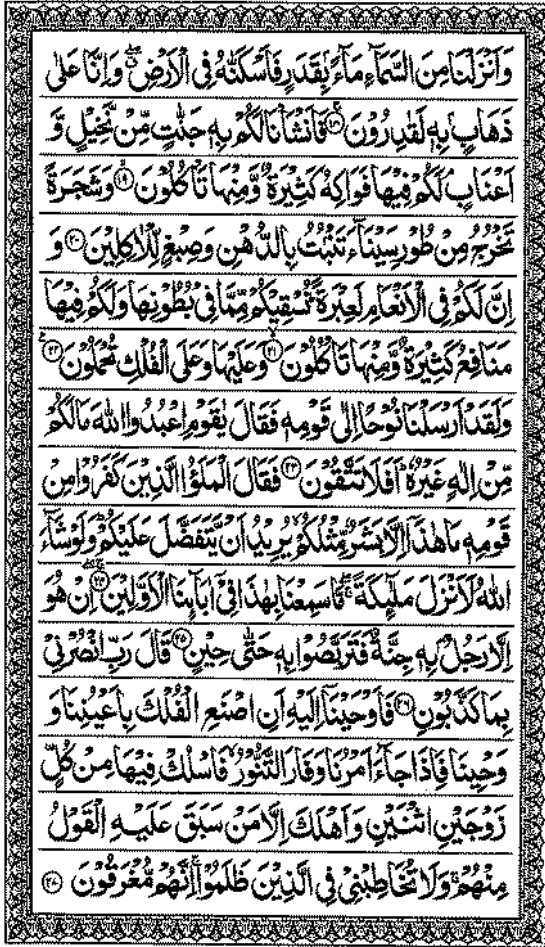 وَاَنْزَلْنَا مِنَ السَّمَآءِ مَآءًۢ بِقَدَرٍ فَاَسْكَنّٰهُ فِی الْاَرْضِ ۖۗ وَاِنَّا عَلٰی
ذَهَابٍۭ بِهٖ لَقٰدِرُوْنَ ۚ﴿۱۸﴾ فَاَنْشَاْنَا لَكُمْ بِهٖ جَنّٰتٍ مِّنْ نَّخِیْلٍ وَّ
اَعْنَابٍ ۘ لَكُمْ فِیْهَا فَوَاكِهُ كَثِیْرَةٌ وَّمِنْهَا تَاْكُلُوْنَ ۙ﴿۱۹﴾ وَشَجَرَةً
تَخْرُجُ مِنْ طُوْرِ سَیْنَآءَ تَنْۢبُتُ بِالدُّهْنِ وَصِبْغٍ لِّلْاٰكِلِیْنَ ﴿۲۰﴾ وَ
اِنَّ لَكُمْ فِی الْاَنْعَامِ لَعِبْرَةً ؕ نُسْقِیْكُمْ مِّمَّا فِیْ بُطُوْنِهَا وَلَكُمْ فِیْهَا
مَنَافِعُ كَثِیْرَةٌ وَّمِنْهَا تَاْكُلُوْنَ ۙ﴿۲۱﴾ وَعَلَیْهَا وَعَلَی الْفُلْكِ تُحْمَلُوْنَ ﴿۲۲﴾
وَلَقَدْ اَرْسَلْنَا نُوْحًا اِلٰی قَوْمِهٖ فَقَالَ یٰقَوْمِ اعْبُدُوا اللّٰهَ مَا لَكُمْ
مِّنْ اِلٰهٍ غَیْرُهٗ ؕ اَفَلَا تَتَّقُوْنَ ﴿۲۳﴾ فَقَالَ الْمَلَؤُا الَّذِیْنَ كَفَرُوْا مِنْ
قَوْمِهٖ مَا هٰذَاۤ اِلَّا بَشَرٌ مِّثْلُكُمْ ۙ یُرِیْدُ اَنْ یَّتَفَضَّلَ عَلَیْكُمْ ؕ وَلَوْ شَآءَ
اللّٰهُ لَاَنْزَلَ مَلٰٓىِٕكَةً ۖۚ مَّا سَمِعْنَا بِهٰذَا فِیْۤ اٰبَآىِٕنَا الْاَوَّلِیْنَ ۚ﴿۲۴﴾ اِنْ هُوَ
اِلَّا رَجُلٌۢ بِهٖ جِنَّةٌ فَتَرَبَّصُوْا بِهٖ حَتّٰی حِیْنٍ ﴿۲۵﴾ قَالَ رَبِّ انْصُرْنِیْ
بِمَا كَذَّبُوْنِ ﴿۲۶﴾ فَاَوْحَیْنَاۤ اِلَیْهِ اَنِ اصْنَعِ الْفُلْكَ بِاَعْیُنِنَا وَ
وَحْیِنَا فَاِذَا جَآءَ اَمْرُنَا وَفَارَ التَّنُّوْرُ ۙ فَاسْلُكْ فِیْهَا مِنْ كُلٍّ
زَوْجَیْنِ اثْنَیْنِ وَاَهْلَكَ اِلَّا مَنْ سَبَقَ عَلَیْهِ الْقَوْلُ
مِنْهُمْ ۚ وَلَا تُخَاطِبْنِیْ فِی الَّذِیْنَ ظَلَمُوْا ۚ اِنَّهُمْ مُّغْرَقُوْنَ ﴿۲۷﴾